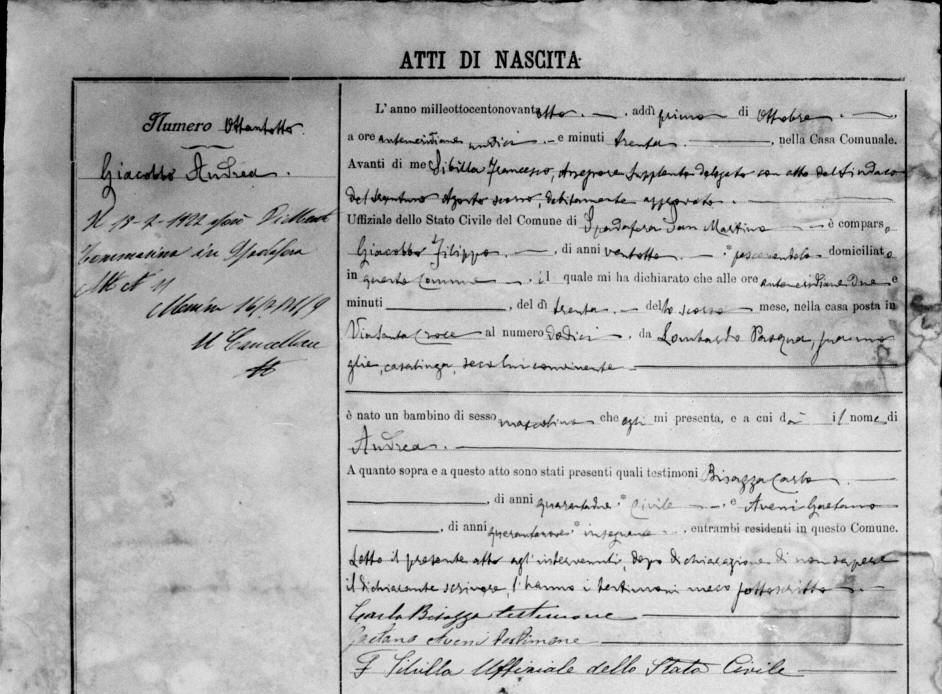 ATTI DI NASCITA
Numero Ottantotto
Giacobbo Andrea
Il 15-2-1922 sposò Di
in Spadafora
Atto N 11
Messina 16/7/19
Il Cancelliere
L'anno milleottocentonovantotto, addì primo di Ottobre,
a ore antemeridiane undici e minuti trenta, nella Casa Comunale.
Avanti di me Sibilla Francesco, Assessore Supplente delegato con atto del Sindaco
del Agosto scorso, debitamente approvato
Uffiziale dello Stato Civile del Comune di Spadafora San Martino è comparso
Giacobbo Filippo, di anni ventotto, pescivendolo domiciliato
in questo Comune, il quale mi ha dichiarato che alle ore antemeridiane due e
minuti, del dì trenta dello scorso mese, nella casa posta in
Via Santa Croce al numero dodici, da Lombardo Pasqua, sua mo
glie, casalinga, seco lui convivente
è nato un bambino di sesso mascolino che egli mi presenta, e a cui dà il nome di
Andrea
A quanto sopra e a questo atto sono stati presenti quali testimoni Bisazza Carlo
, di anni quarantadue, Civile e Aveni Gaetano
, di anni quarantanove, insegnante, entrambi residenti in questo Comune.
Letto il presente atto agl'intervenuti, dopo dichiarazione di non sapere
il dichiarante scrivere, l'hanno i testimoni meco sottoscritto
Carlo Bisazza testimone
Gaetano Aveni testimone
F Sibilla Uffiziale dello Stato Civile